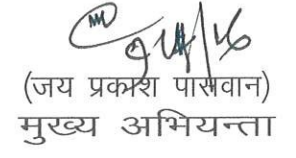 (जय प्रकाश पासवान)
मुख्य अभियन्ता